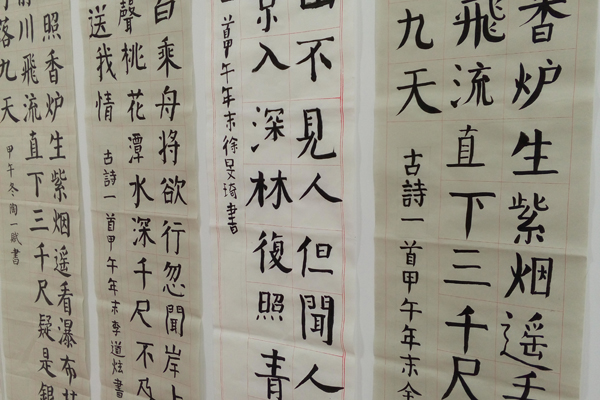 香炉生紫烟遥看
飛流直下三千尺
九天 古詩一首甲午年末金
山不見人但聞人
景入深林復照青
一首甲午年末徐旻琦書
白乘舟將欲行忽聞岸上
聲桃花潭水深千尺不及
送我情 古詩一首甲午年末李道炫書
照香炉生紫烟遥看瀑布挂
前川飛流直下三千尺疑是銀
落九天 甲午冬陶一賦書